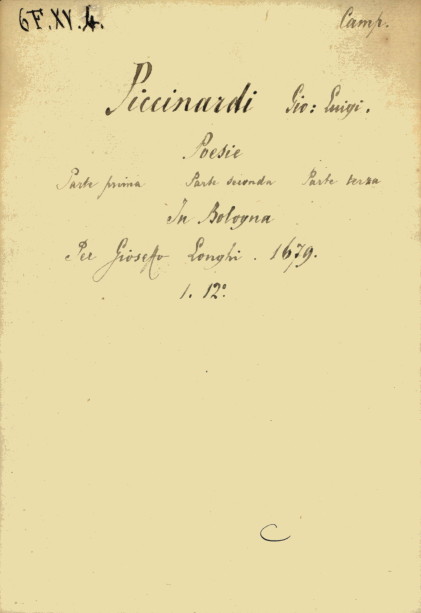 6F.XV.4. Camp.
Piccinardi Gio: Luigi.
Poesie
Parte prima Parte seconda Parte terza
In Bologna
Per Gioseffo Longhi. 1679.
1. 12°.
C